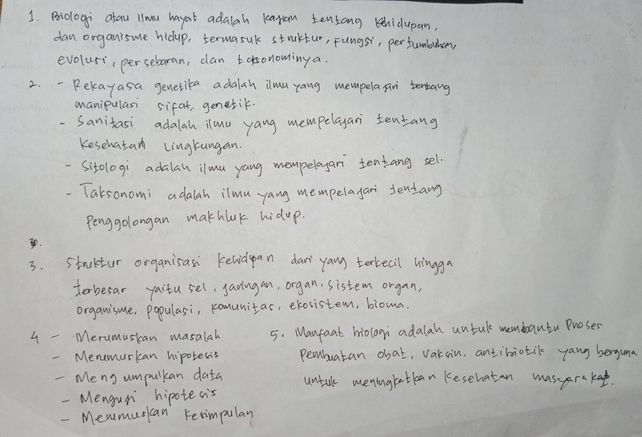 1. Biologi atau ilmu hayat adalah kajian tentang kehidupan,
dan organisme hidup, termasuk struktur, fungsi, pertumbuhan,
evolusi, persebaran, dan taksonominya.
2. - Rekayasa genetika adalah ilmu yang mempelajari tentang
manipulasi sifat genetik.
- Sanitasi adalah ilmu yang mempelajari tentang
kesehatan Lingkungan.
- Sitologi adalah ilmu yang mempelajari tentang sel.
- Taksonomi adalah ilmu yang mempelajari tentang
Penggolongan makhluk hidup.
3. Struktur organisasi kehidupan dari yang terkecil hingga
terbesar yaitu sel, jaringan, organ, sistem organ,
organisme, populasi, komunitas, ekosistem, bioma.
4 - Merumuskan masalah
- Merumuskan hipotesis
- Mengumpulkan data
- Menguji hipotesis
- Merumuskan kesimpulan
5. Manfaat biologi adalah untuk membantu Proses
Pembuatan obat, vaksin, antibiotik yang berguna
untuk meningkatkan kesehatan masyarakat.